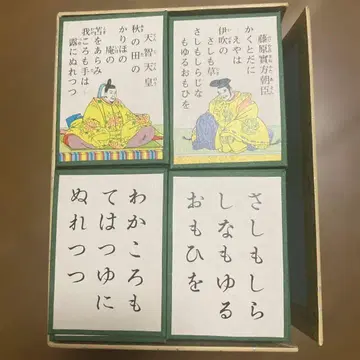 天智天皇
秋の田の
かりほの
庵の
苫をあらみ
我ころも手は
露にぬれつつ
藤原實方朝臣
かくとだに
えやは
伊吹の
さしも草
さしもしらじな
もゆるおもひを
わかころも
てはつゆに
ぬれつつ
さしもしら
しなもゆる
おもひを